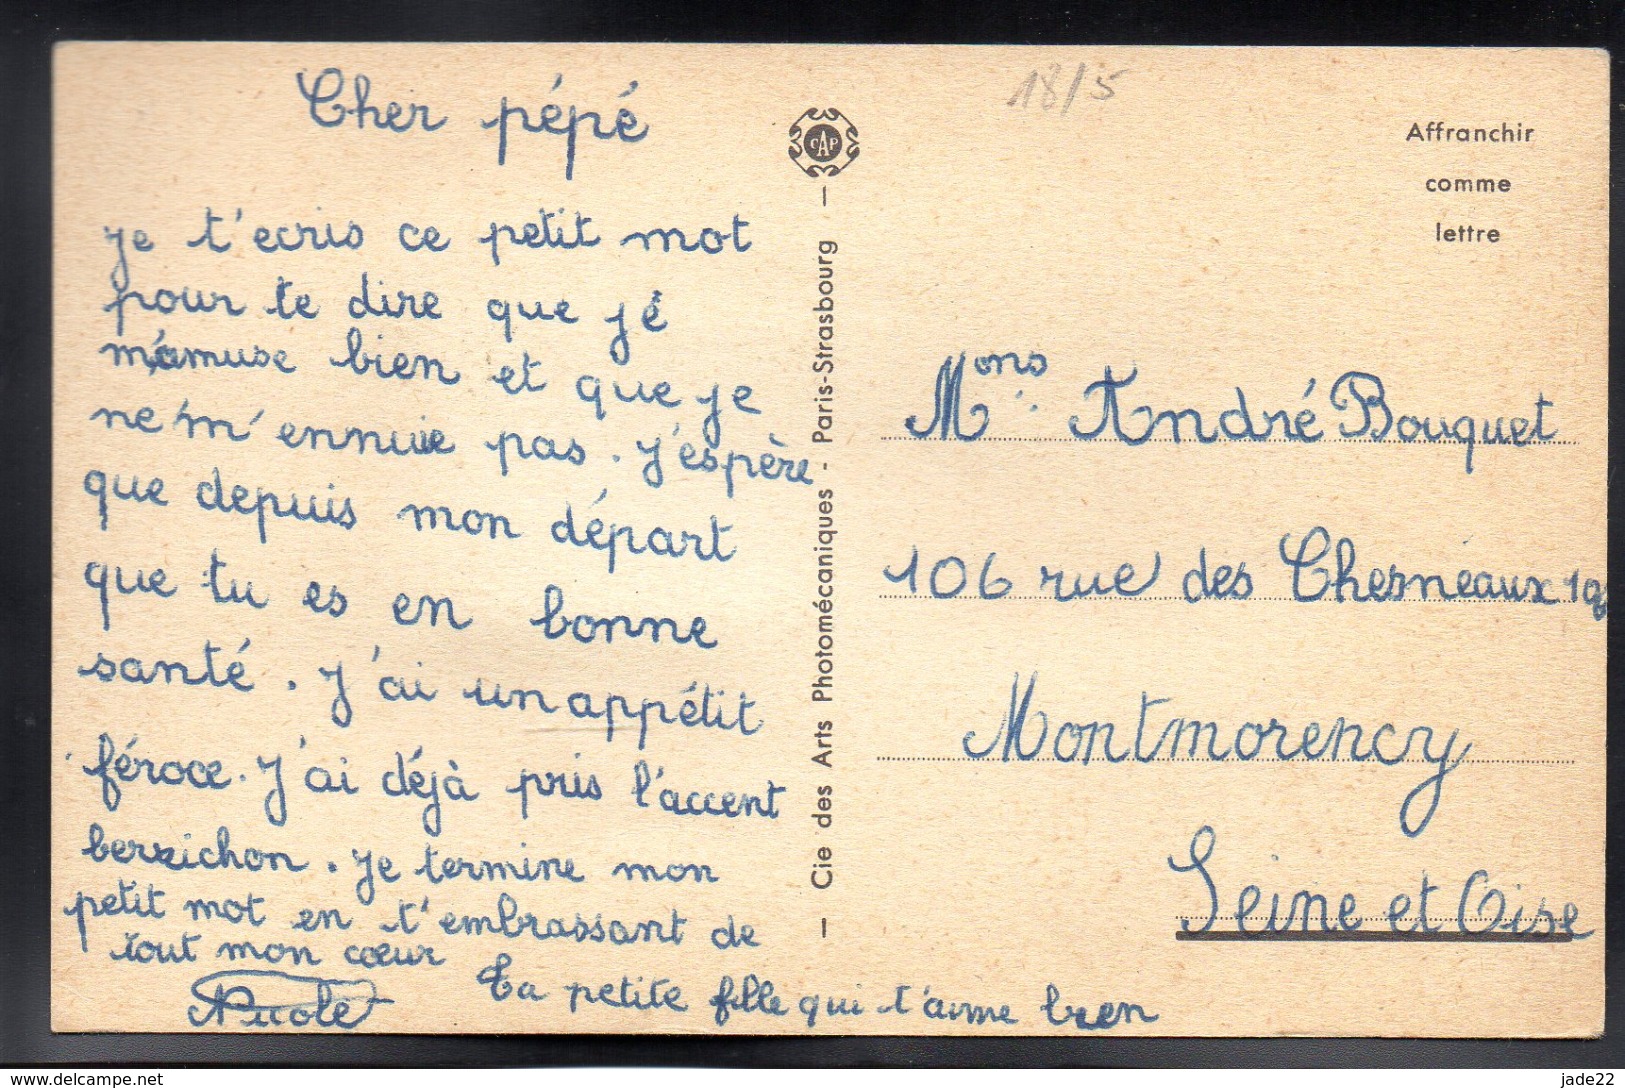 Cher pépé
je t'ecris ce petit mot
pour te dire que je
m'amuse bien et que je
ne m'ennuie pas. J'éspère
que depuis mon départ
que tu es en bonne
santé. J'ai un appétit
féroce. J'ai déjà pris l'accent
berrichon. Je termine mon
petit mot en t'embrassant de
tout mon cœur
Ta petite fille qui t'aime bien
Nicole
CAP
— Cie des Arts Photomécaniques - Paris-Strasbourg —
18/5
Affranchir
comme
lettre
Mons André Bouquet
106 rue des Chesneaux
Montmorency
Seine et Oise
www.delcampe.net
jade22